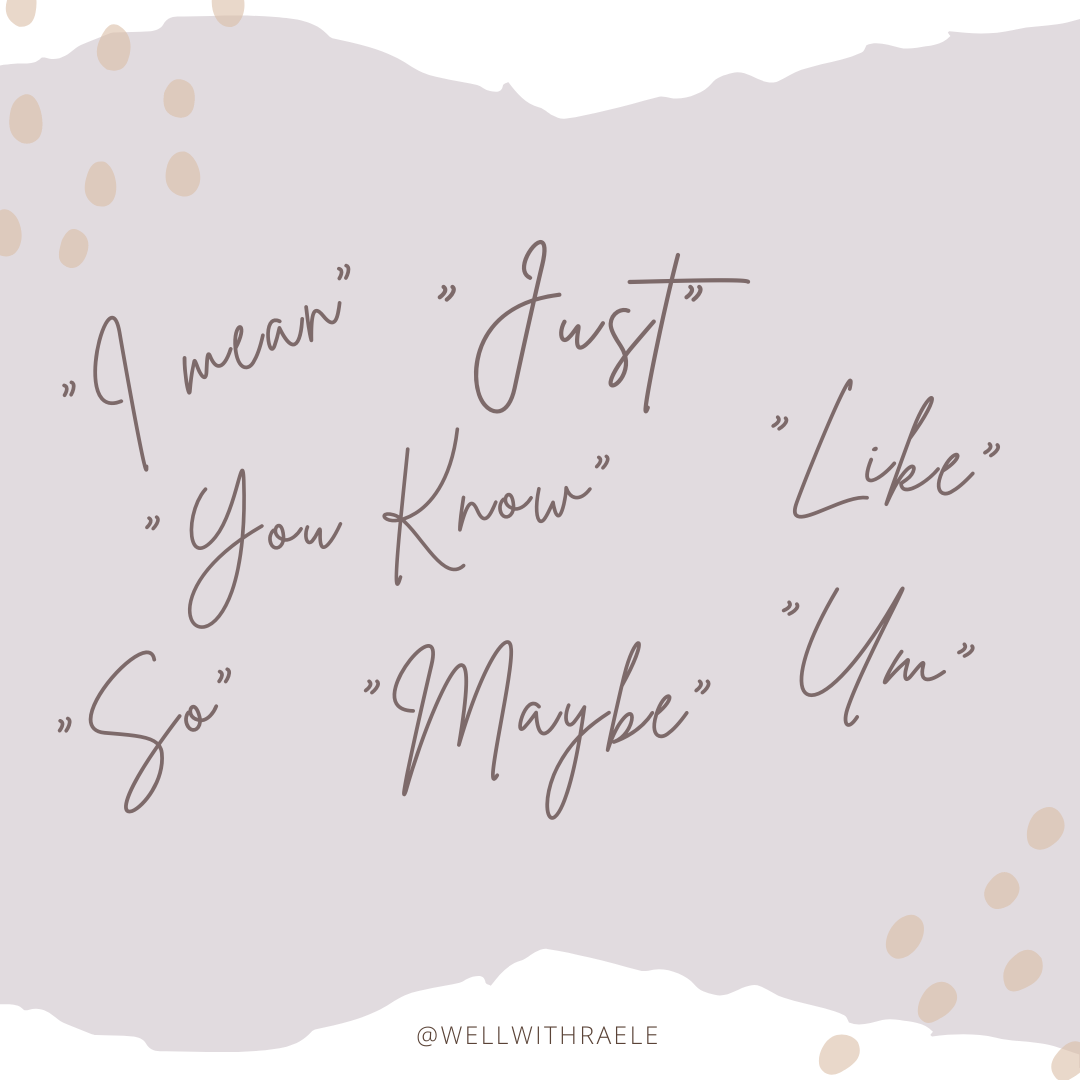 ”I mean”
”Just”
”Like”
”You Know”
”Um”
”So”
”Maybe”
@WELLWITHRAELE